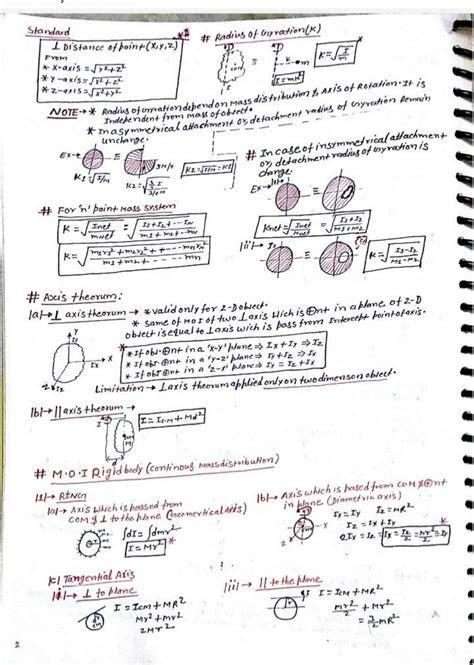 Standard
⊥ Distance of point (x,y,z)
From
* x-axis = √y²+z²
* y-axis = √x²+z²
* z-axis = √x²+y²
# Radius of Gyration (K)
K = √I/m
I = mK²
NOTE → * Radius of Gyration depend on Mass distribution & Axis of Rotation. It is
Independent from mass of object.
* In a symmetrical attachment or detachment radius of Gyration Remain
unchange.
Ex →
K1 = √I/M
K2 = √
K2 = √I/M = K1
# In case of insymmetrical attachment
or, detachment radius of Gyration is
change.
Ex → |i|
Knet = √Inet/mnet = √I1+I2/M1+M2
|ii|
K = √I1-I2/M1-M2
# For 'n' point Mass System
K = √Inet/mNet = √I1+I2+---IN/m1+m2+--mN
K = √m1r1²+m2r2²+----mnrn²/m1+m2+----mn
# Axis theorum:
|a| → ⊥ axis theorum → * valid only for 2-D object.
* same of MOI of two ⊥ axis which is in a plane of 2-D
object is equal to ⊥ axis wich is pass from Intercept point of axis.
* If obj. nt in a 'x-y' plane ⇒ Ix+Iy = Iz
* If obj nt in a 'y-z' plane ⇒ Iy+Iz = Ix
* If obj nt in a 'z-x' plane ⇒ Iz+Ix
Limitation → ⊥ axis theorum applied only on two dimenson object.
|b| → || axis theorum →
I = Ic.m + Md²
# M.O.I Rigid body (continous Mass distribution)
|1| → RING
|a| → Axis which is passed from
COM & ⊥ to the plane
∫dI = ∫dmr²
I = Mr²
|b| → Axis which is pased from COM
in plane (Diametric axis)
Ix = Iy Iz = MR²
Iz = Ix + Iy
2Iy = Iz
|c| Tangential Axis
|i| → ⊥ to plane
I = Icm + MR²
Mr² + mr²
2Mr²
|ii| → || to the plane
I = Icm + MR²
mr²/2 + Mr²
= 3/2 mR²
2